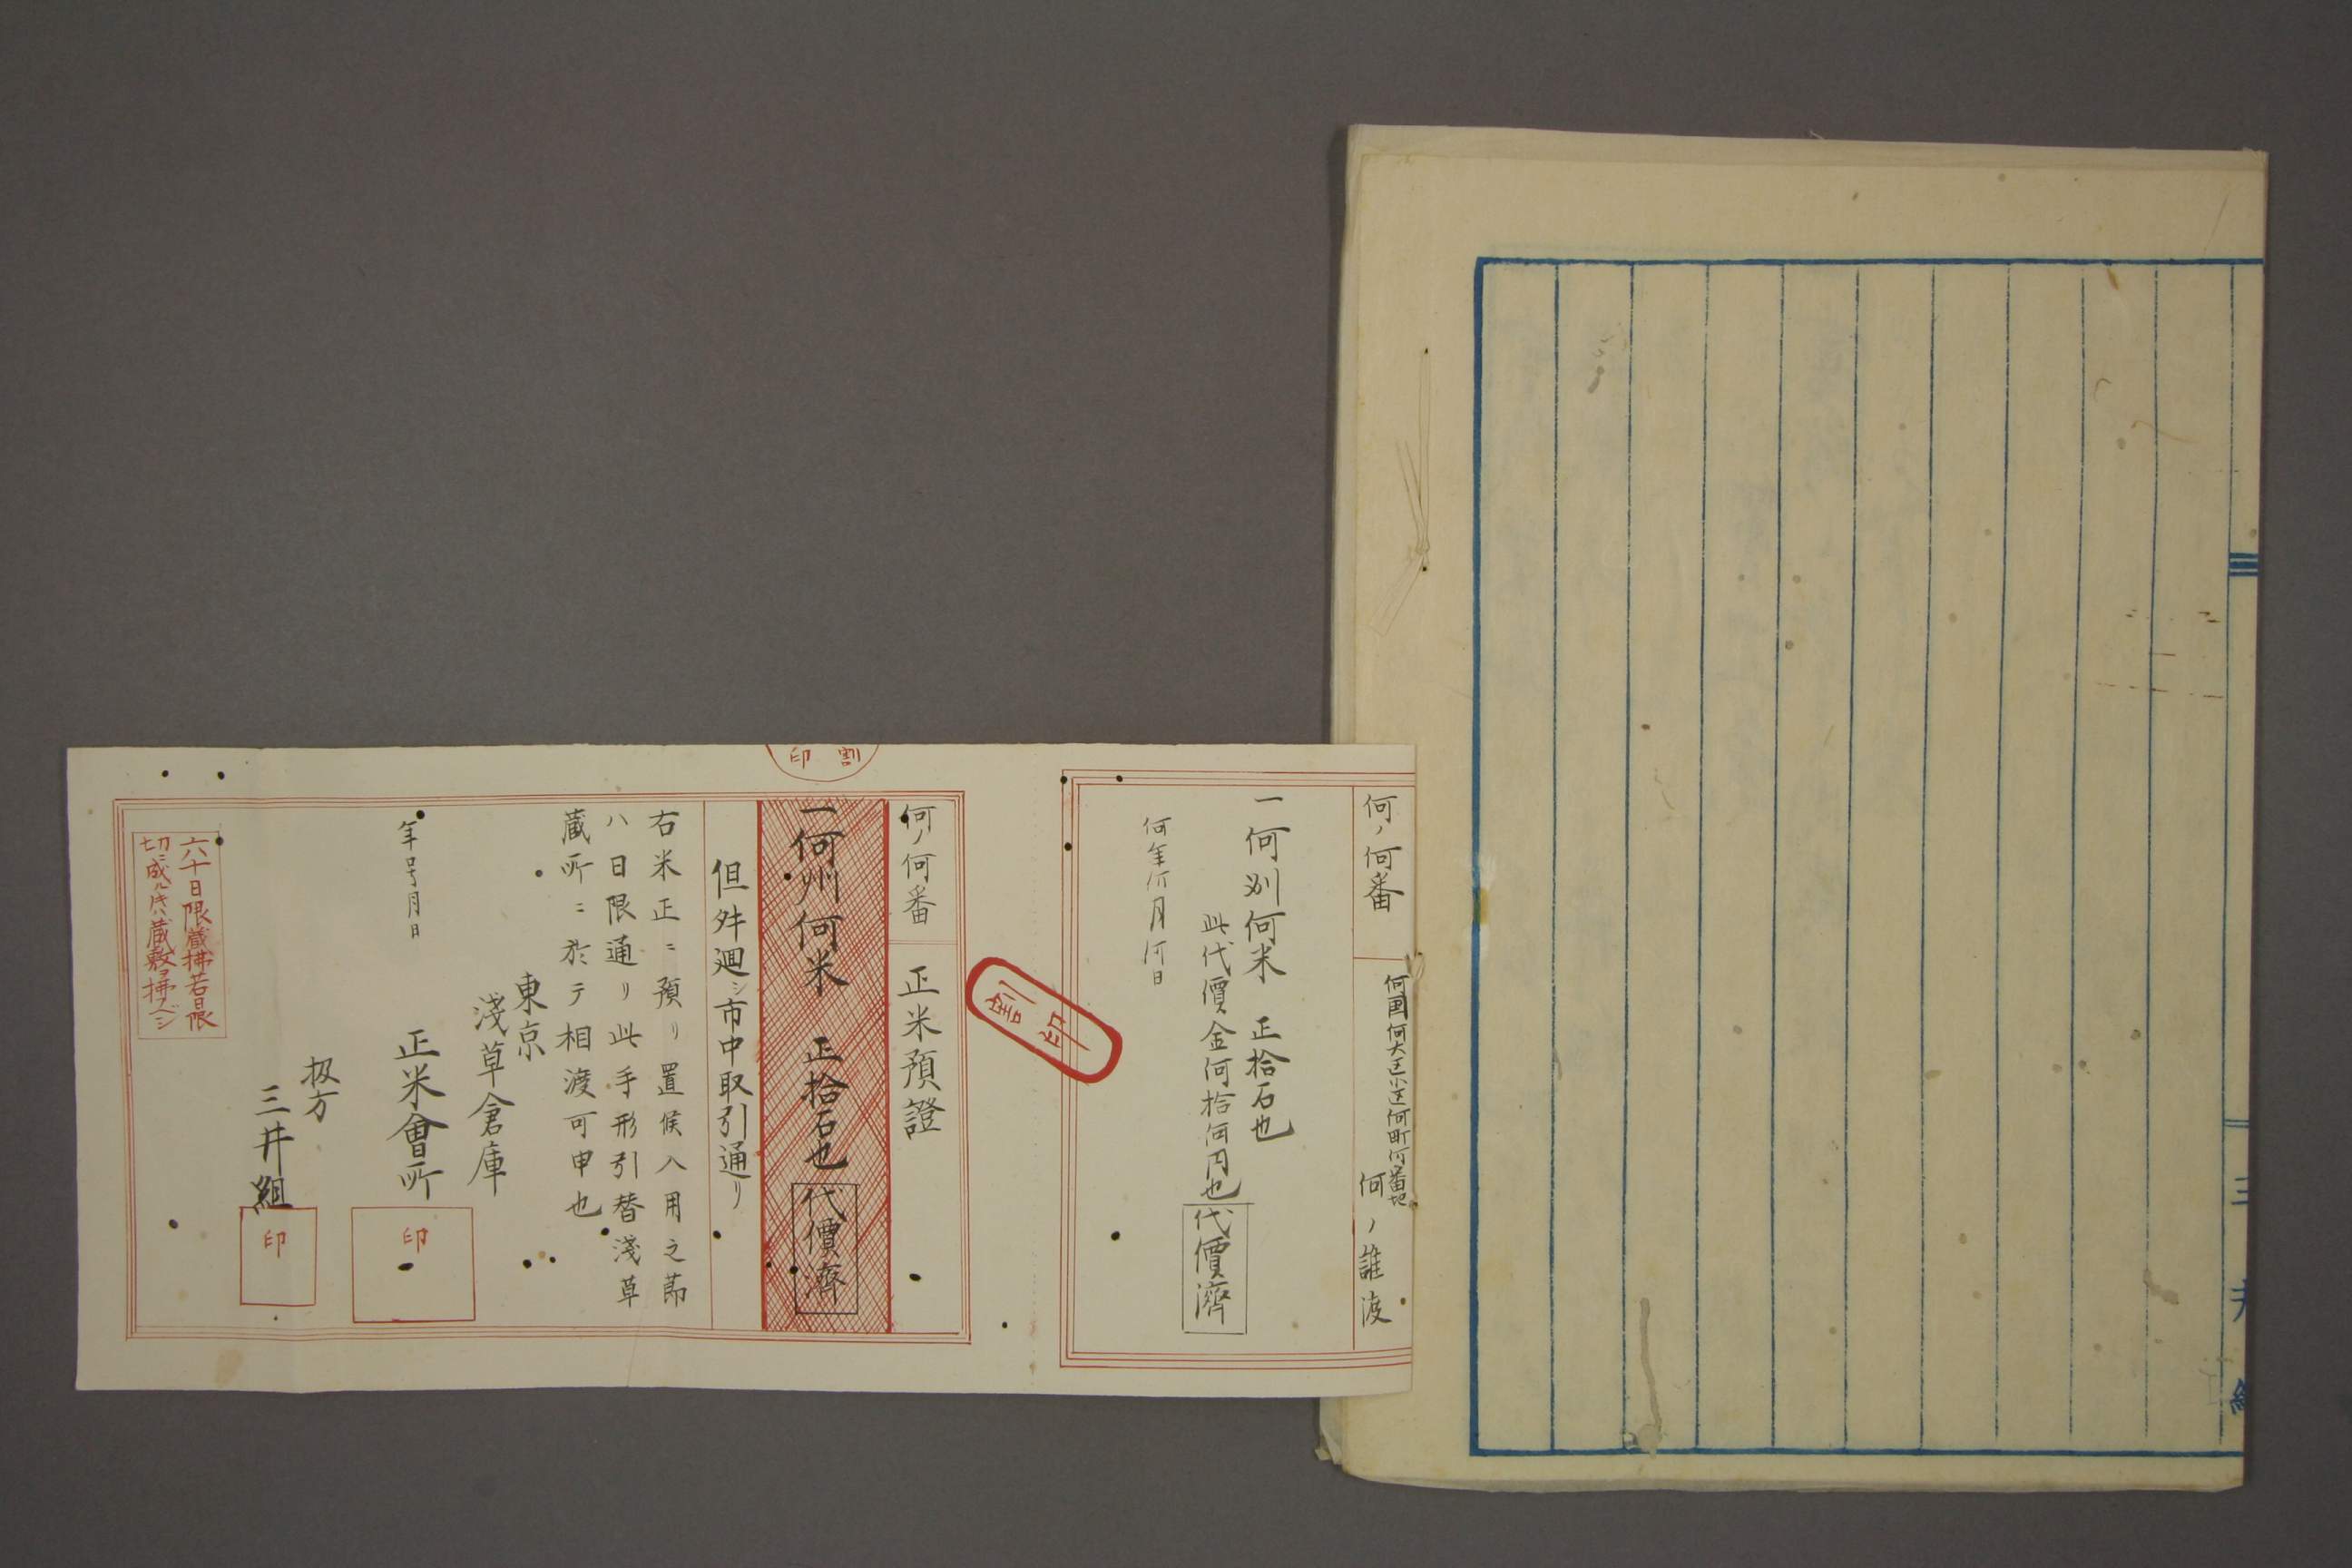 何ノ何番
何国何大区小区何町何番地
何ノ誰渡
一何州何米 正拾石也
此代價金何拾何円也
代價濟
何年何月何日
割印
割印
何ノ何番 正米預證
一何州何米 正拾石也 代價濟
但舛廻シ市中取引通リ
右米正ニ預リ置候入用之節
ハ日限通リ此手形引替淺草
蔵所ニ於テ相渡可申也
東京
淺草倉庫
年号月日
正米會所
印
扱方
三井組
印
六十日限蔵拂若日限
切ニ成ル片ハ蔵敷ヲ拂フベシ
三井組